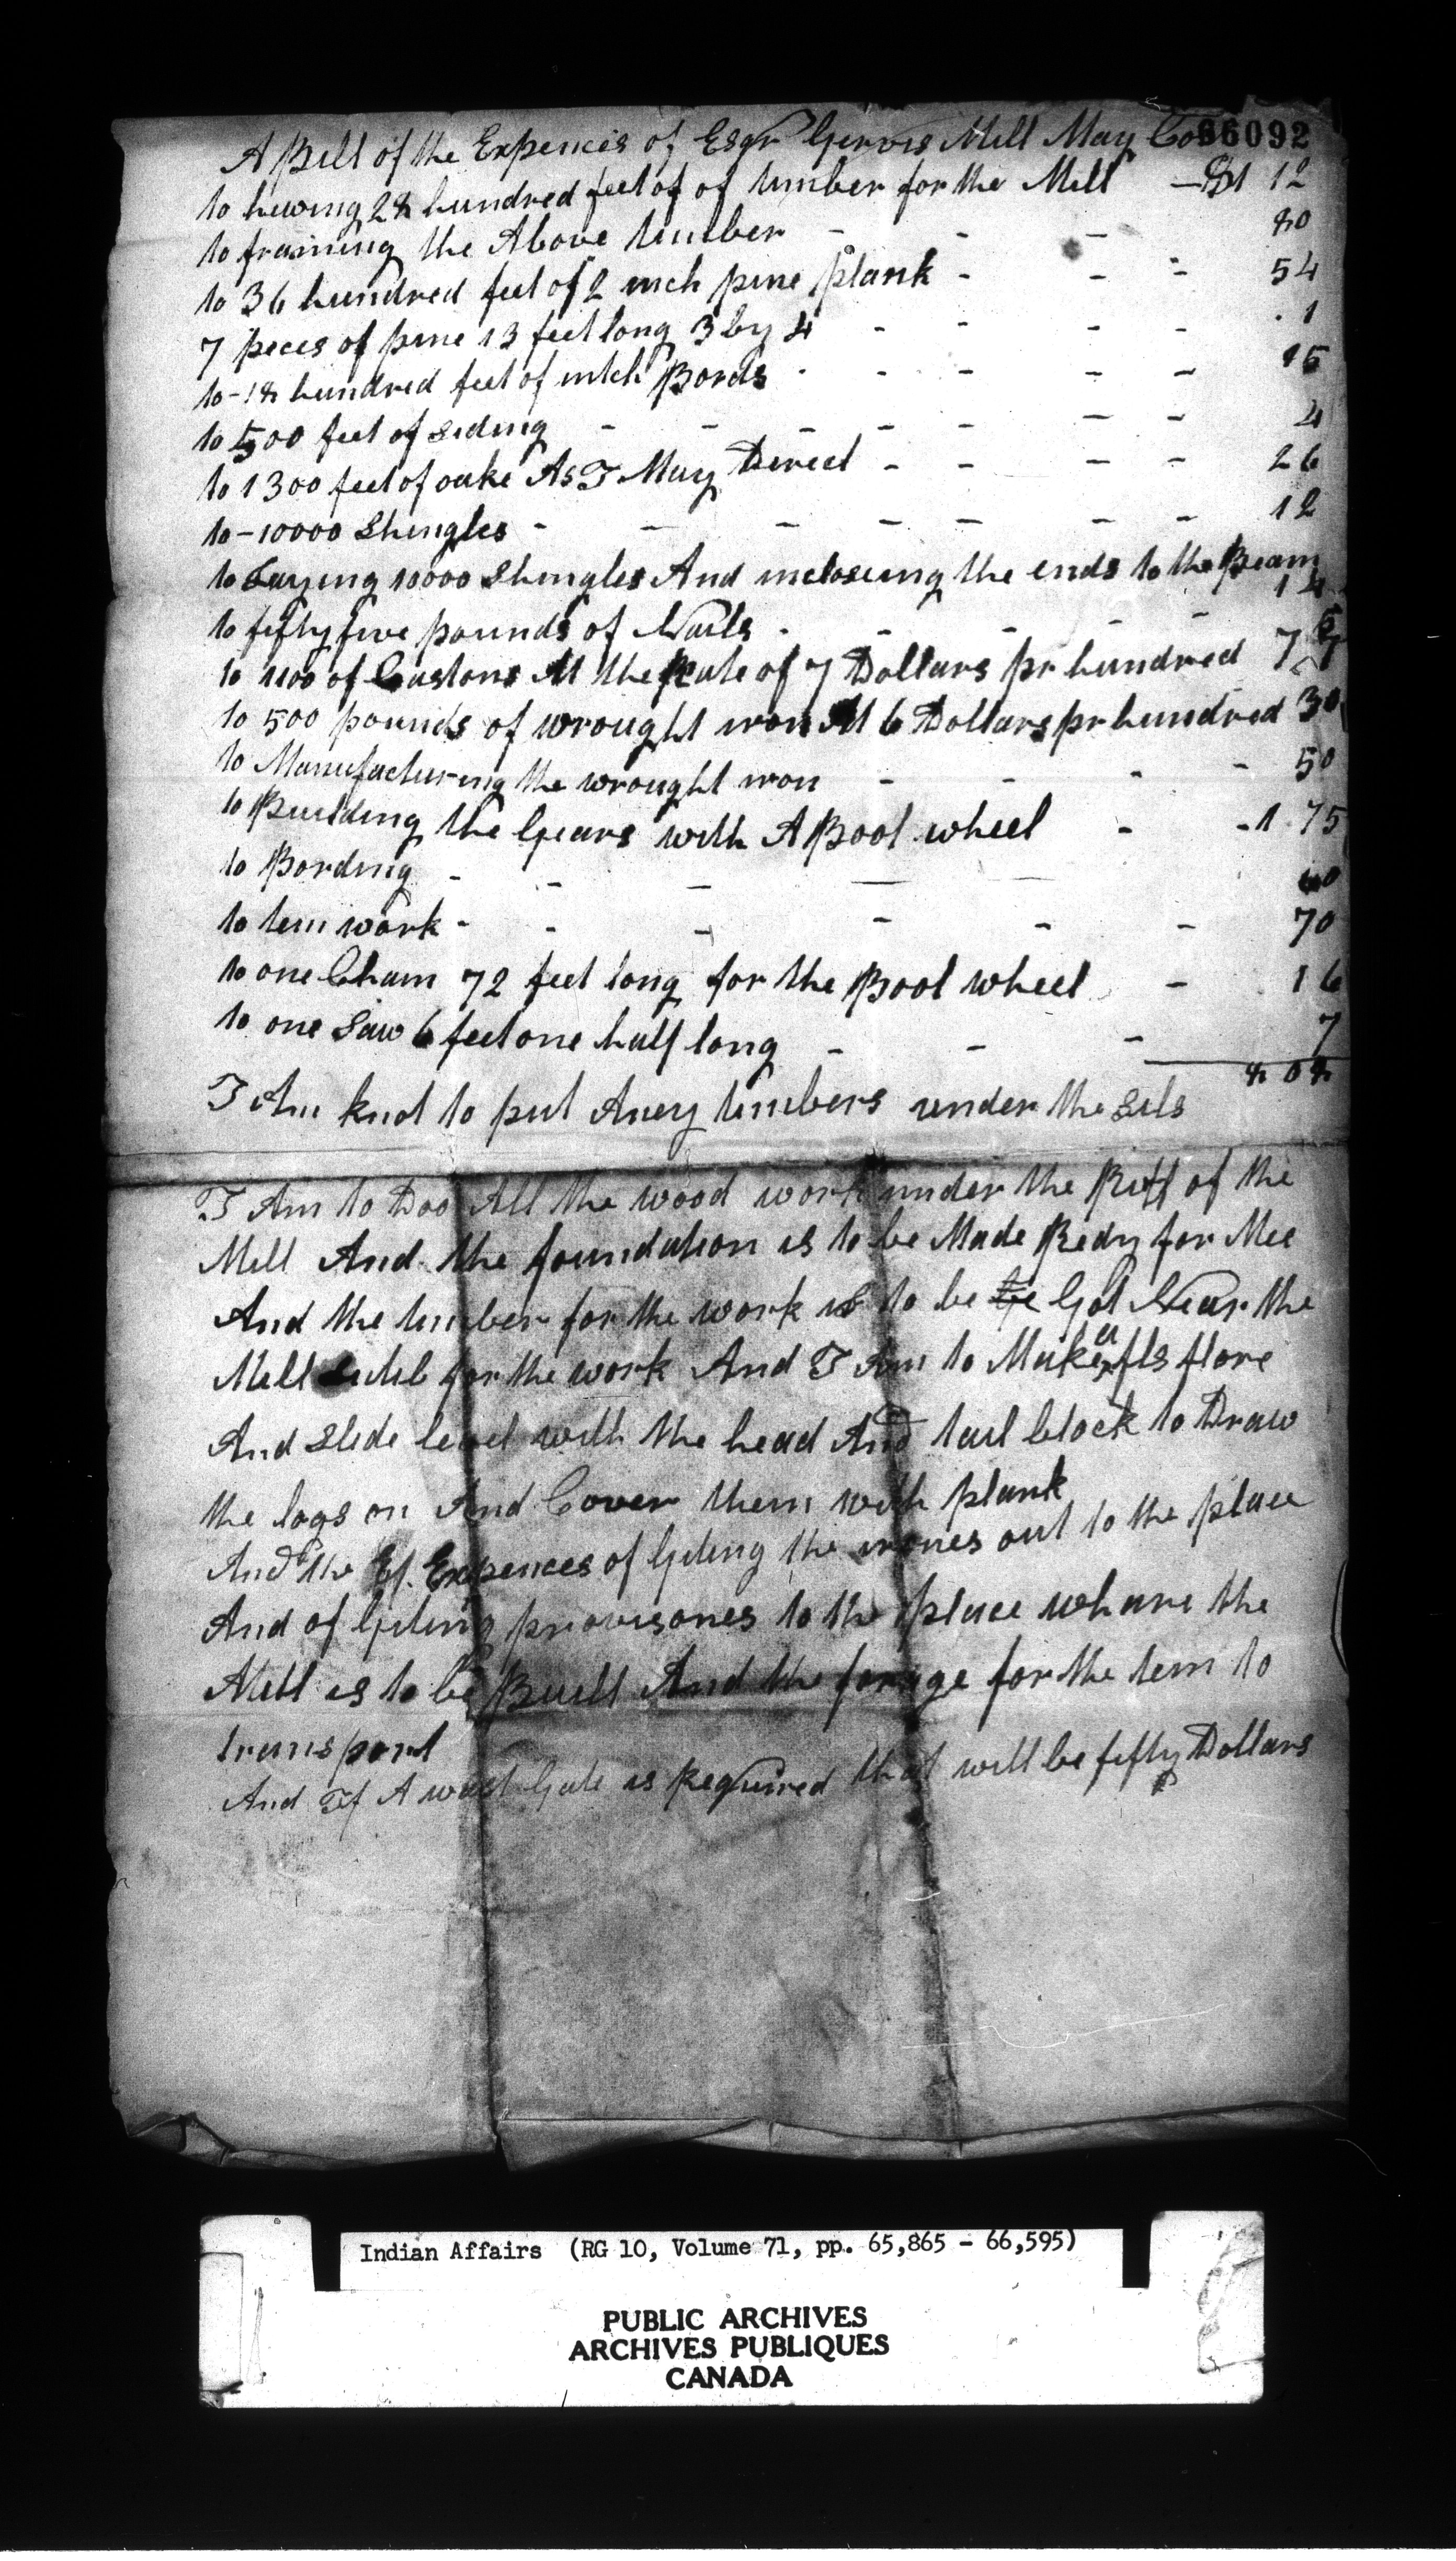 A Bill of the Expences of Esqr Gervis Mill May Cost 66092
to hewing 28 hundred feet of of timber for the Mill — $ 1 12
to framing the Above timber - - - 80
to 36 hundred feet of 2 inch pine plank - - - 54
7 peces of pine 13 feet long 3 by 4 - - - - 1
to - 18 hundred feet of intch Bords - - - - - 15
to 500 feet of Siding - - - - - - - 4
to 1300 feet of oake As I May Direct - - - - 26
to - 10000 Shingles - - - - - - - 12
to Laying 10000 Shingles And incloseing the ends to the Beam
14
to fifty five pounds of Nails - - - - -
to 1100 of Castons At the Rate of 7 Dollars pr hundred 77
to 500 pounds of wrought iron At 6 Dollars pr hundred 30
to Manufacturing the wrought iron - - - - 50
to Building the Gears with A Bool wheel - - 1 75
to Bording - - - — — 40
to tem work - - - - - - 70
to one Chain 72 feet long for the Bool wheel - 16
to one Saw 6 feet one half long - - - 7
808
I Am knot to put Aney timbers under the Sils
I Am to Doo All the wood work under the Ruff of the
Mill And the foundation is to be Made Redy for Mee
And the timber for the work is to be be Got Near the
Mill for the work And I Am to Make a fls flore
And Slide level with the head And tail block to Draw
the logs on And Cover them with plank
And the Ex. Expences of Giting the irones out to the place
And of Giting provisones to the place whare the
Mill is to be Built And the forage for the tem to
transport
And If A wast Gate is Required that will be fifty Dollars
Indian Affairs (RG 10, Volume 71, pp. 65,865 - 66,595)
PUBLIC ARCHIVES
ARCHIVES PUBLIQUES
CANADA